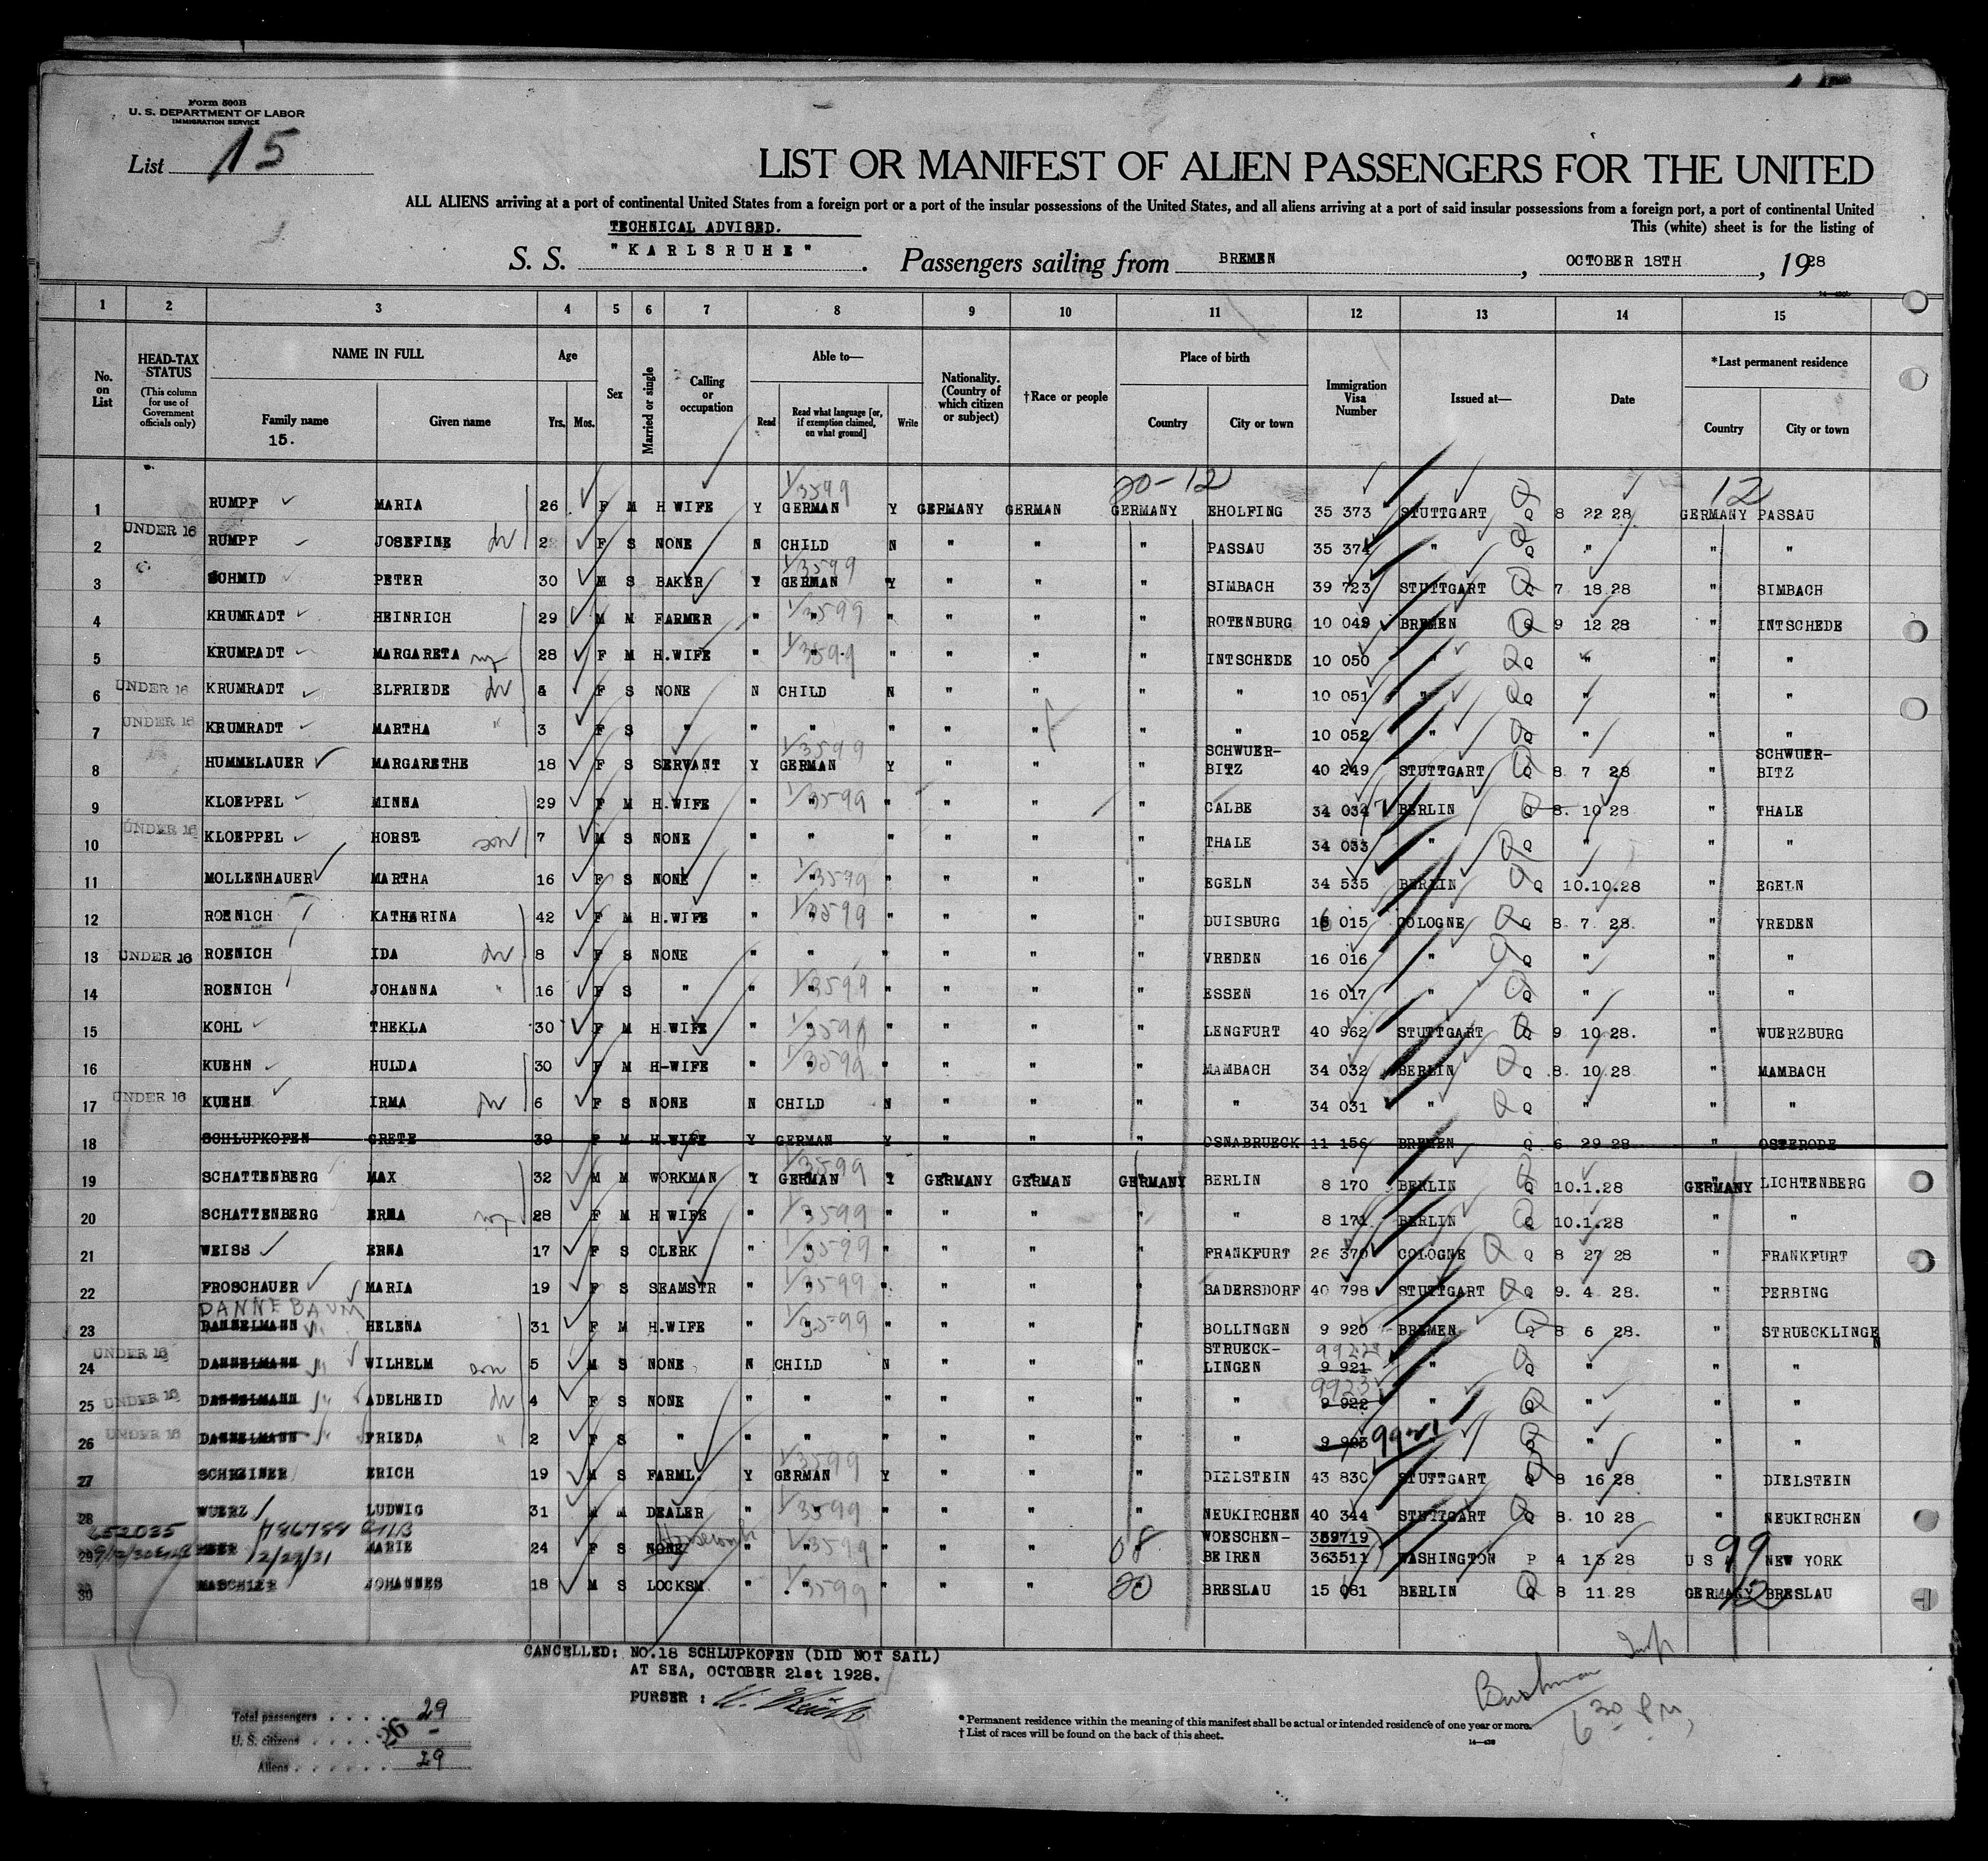 Form 500B
U. S. DEPARTMENT OF LABOR
IMMIGRATION SERVICE
List 15
LIST OR MANIFEST OF ALIEN PASSENGERS FOR THE UNITED
ALL ALIENS arriving at a port of continental United States from a foreign port or a port of the insular possessions of the United States, and all aliens arriving at a port of said insular possessions from a foreign port, a port of continental United
This (white) sheet is for the listing of
TECHNICAL ADVISED.
S. S. "KARLSRUHE". Passengers sailing from BREMEN, OCTOBER 18TH, 1928
1 2 3 4 5 6 7 8 9 10 11 12 13 14 15
No. on List
HEAD-TAX STATUS (This column for use of Government officials only)
NAME IN FULL
Family name
15.
Given name
Age
Yrs. Mos.
Sex
Married or single
Calling or occupation
Able to—
Read
Read what language [or, if exemption claimed, on what ground]
Write
Nationality. (Country of which citizen or subject)
†Race or people
Place of birth
Country
City or town
Immigration Visa Number
Issued at—
Date
*Last permanent residence
Country
City or town
1/3599 20-12 12
1 RUMPF MARIA 26 F M H WIFE Y GERMAN Y GERMANY GERMAN GERMANY EHOLFING 35 373 STUTTGART Q 8 22 28 GERMANY PASSAU
2 UNDER 16 RUMPF JOSEFINE 2 F S NONE N CHILD N " " " PASSAU 35 374 " Q " " "
3 SCHMID PETER 30 M S BAKER Y GERMAN Y " " " SIMBACH 39 723 STUTTGART Q 7 18 28 " SIMBACH
4 KRUMRADT HEINRICH 29 M M FARMER " " " " " " ROTENBURG 10 049 BREMEN Q 9 12 28 " INTSCHEDE
5 KRUMRADT MARGARETA 28 F M H.WIFE " " " " " " INTSCHEDE 10 050 " Q " " "
6 UNDER 16 KRUMRADT ELFRIEDE F S NONE N CHILD N " " " " 10 051 " Q " " "
7 UNDER 16 KRUMRADT MARTHA " 3 F S " " " " " " " " 10 052 " Q " " "
8 HUMMELAUER MARGARETHE 18 F S SERVANT Y GERMAN Y " " " SCHWUER-BITZ 40 249 STUTTGART Q 8 7 28 " SCHWUER-BITZ
9 KLOEPPEL MINNA 29 F M H.WIFE " " " " " " CALBE 34 034 BERLIN Q 8. 10 28 " THALE
10 UNDER 16 KLOEPPEL HORST son 7 M S NONE " " " " " " THALE 34 033 " Q " " "
11 MOLLENHAUER MARTHA 16 F S NONE " " " " " " EGELN 34 535 BERLIN Q 10.10.28 " EGELN
12 ROENICH KATHARINA 42 F M H.WIFE " " " " " " DUISBURG 16 015 COLOGNE Q 8 7 28 " VREDEN
13 UNDER 16 ROENICH IDA 8 F S NONE " " " " " " VREDEN 16 016 " Q " " "
14 ROENICH JOHANNA " 16 F S " " " " " " " ESSEN 16 017 " Q " " "
15 KOHL THEKLA 30 F M H.WIFE " " " " " " LENGFURT 40 962 STUTTGART Q 9 10 28. " WUERZBURG
16 KUEHN HULDA 30 F M H-WIFE " " " " " " MAMBACH 34 032 BERLIN Q 8. 10 28 " MAMBACH
17 UNDER 16 KUEHN IRMA 6 F S NONE N CHILD N " " " " 34 031 " Q " " "
18 SCHLUPKOFEN GRETE 39 F M H.WIFE Y GERMAN Y " " " OSNABRUECK 11 156 BREMEN Q 6 29 28 " OSTERODE
19 SCHATTENBERG MAX 32 M M WORKMAN Y GERMAN Y GERMANY GERMAN GERMANY BERLIN 8 170 BERLIN Q 10.1.28 GERMANY LICHTENBERG
20 SCHATTENBERG ERNA 28 F M H WIFE " " " " " " " 8 171 BERLIN Q 10.1.28 " "
21 WEISS ERNA 17 F S CLERK " " " " " " FRANKFURT 26 370 COLOGNE Q 8 27 28 " FRANKFURT
22 FROSCHAUER MARIA 19 F S SEAMSTR " " " " " " BADERSDORF 40 798 STUTTGART Q 9. 4 28. " PERBING
DANNEBAUM
23 DANNELMANN HELENA 31 F M H.WIFE " " " " " " BOLLINGEN 9 920 BREMEN Q 8 6 28. " STRUECKLINGEN
24 UNDER 16 DANNELMANN WILHELM son 5 M S NONE N CHILD N " " " STRUECK-LINGEN 9 921 9922 " Q " " "
25 UNDER 16 DANNELMANN ADELHEID 4 F S NONE " " " " " " " 9 922 9923 " Q " " "
26 UNDER 16 DANNELMANN FRIEDA " 2 F S " " " " " " " " 9921 " Q " " "
27 SCHREINER ERICH 19 M S FARML. Y GERMAN Y " " " DIELSTEIN 43 830 STUTTGART Q 8 16 28 " DIELSTEIN
28 WUERZ LUDWIG 31 M M DEALER " " " " " " NEUKIRCHEN 40 344 STUTTGART Q 8. 10 28 " NEUKIRCHEN
652035 786788 12/29/31
29 MARIE 24 F S NONE " " " " " 08 WOESCHEN-BEIREN 359719 363511 WASHINGTON P 4 13 28 U S A 99 NEW YORK
30 MASCHLER JOHANNES 18 M S LOCKSM. " " " " " 20 BRESLAU 15 081 BERLIN Q 8 11 28 GERMANY 12 BRESLAU
CANCELLED: NO.18 SCHLUPKOFEN (DID NOT SAIL)
AT SEA, OCTOBER 21st 1928.
PURSER :
Bushman Insp
6 30 P.M.
Total passengers . . . . 29
U. S. citizens . . . . –
Aliens . . . . . . 29
26
* Permanent residence within the meaning of this manifest shall be actual or intended residence of one year or more.
† List of races will be found on the back of this sheet.